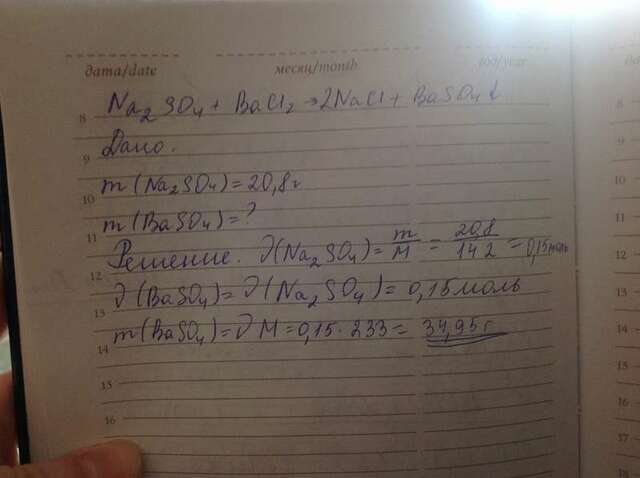 дата/date месяц/month год/year
8 Na2SO4 + BaCl2 → 2NaCl + BaSO4↓
9 Дано.
10 m(Na2SO4) = 20,8 г
11 m(BaSO4) = ?
12 Решение. ∂(Na2SO4) = m/M = 20,8/142 = 0,15 моль
13 ∂(BaSO4) = ∂(Na2SO4) = 0,15 моль
14 m(BaSO4) = ∂ M = 0,15 · 233 = 34,95 г
15
16
8
9
10
11
12
13
14
15
16